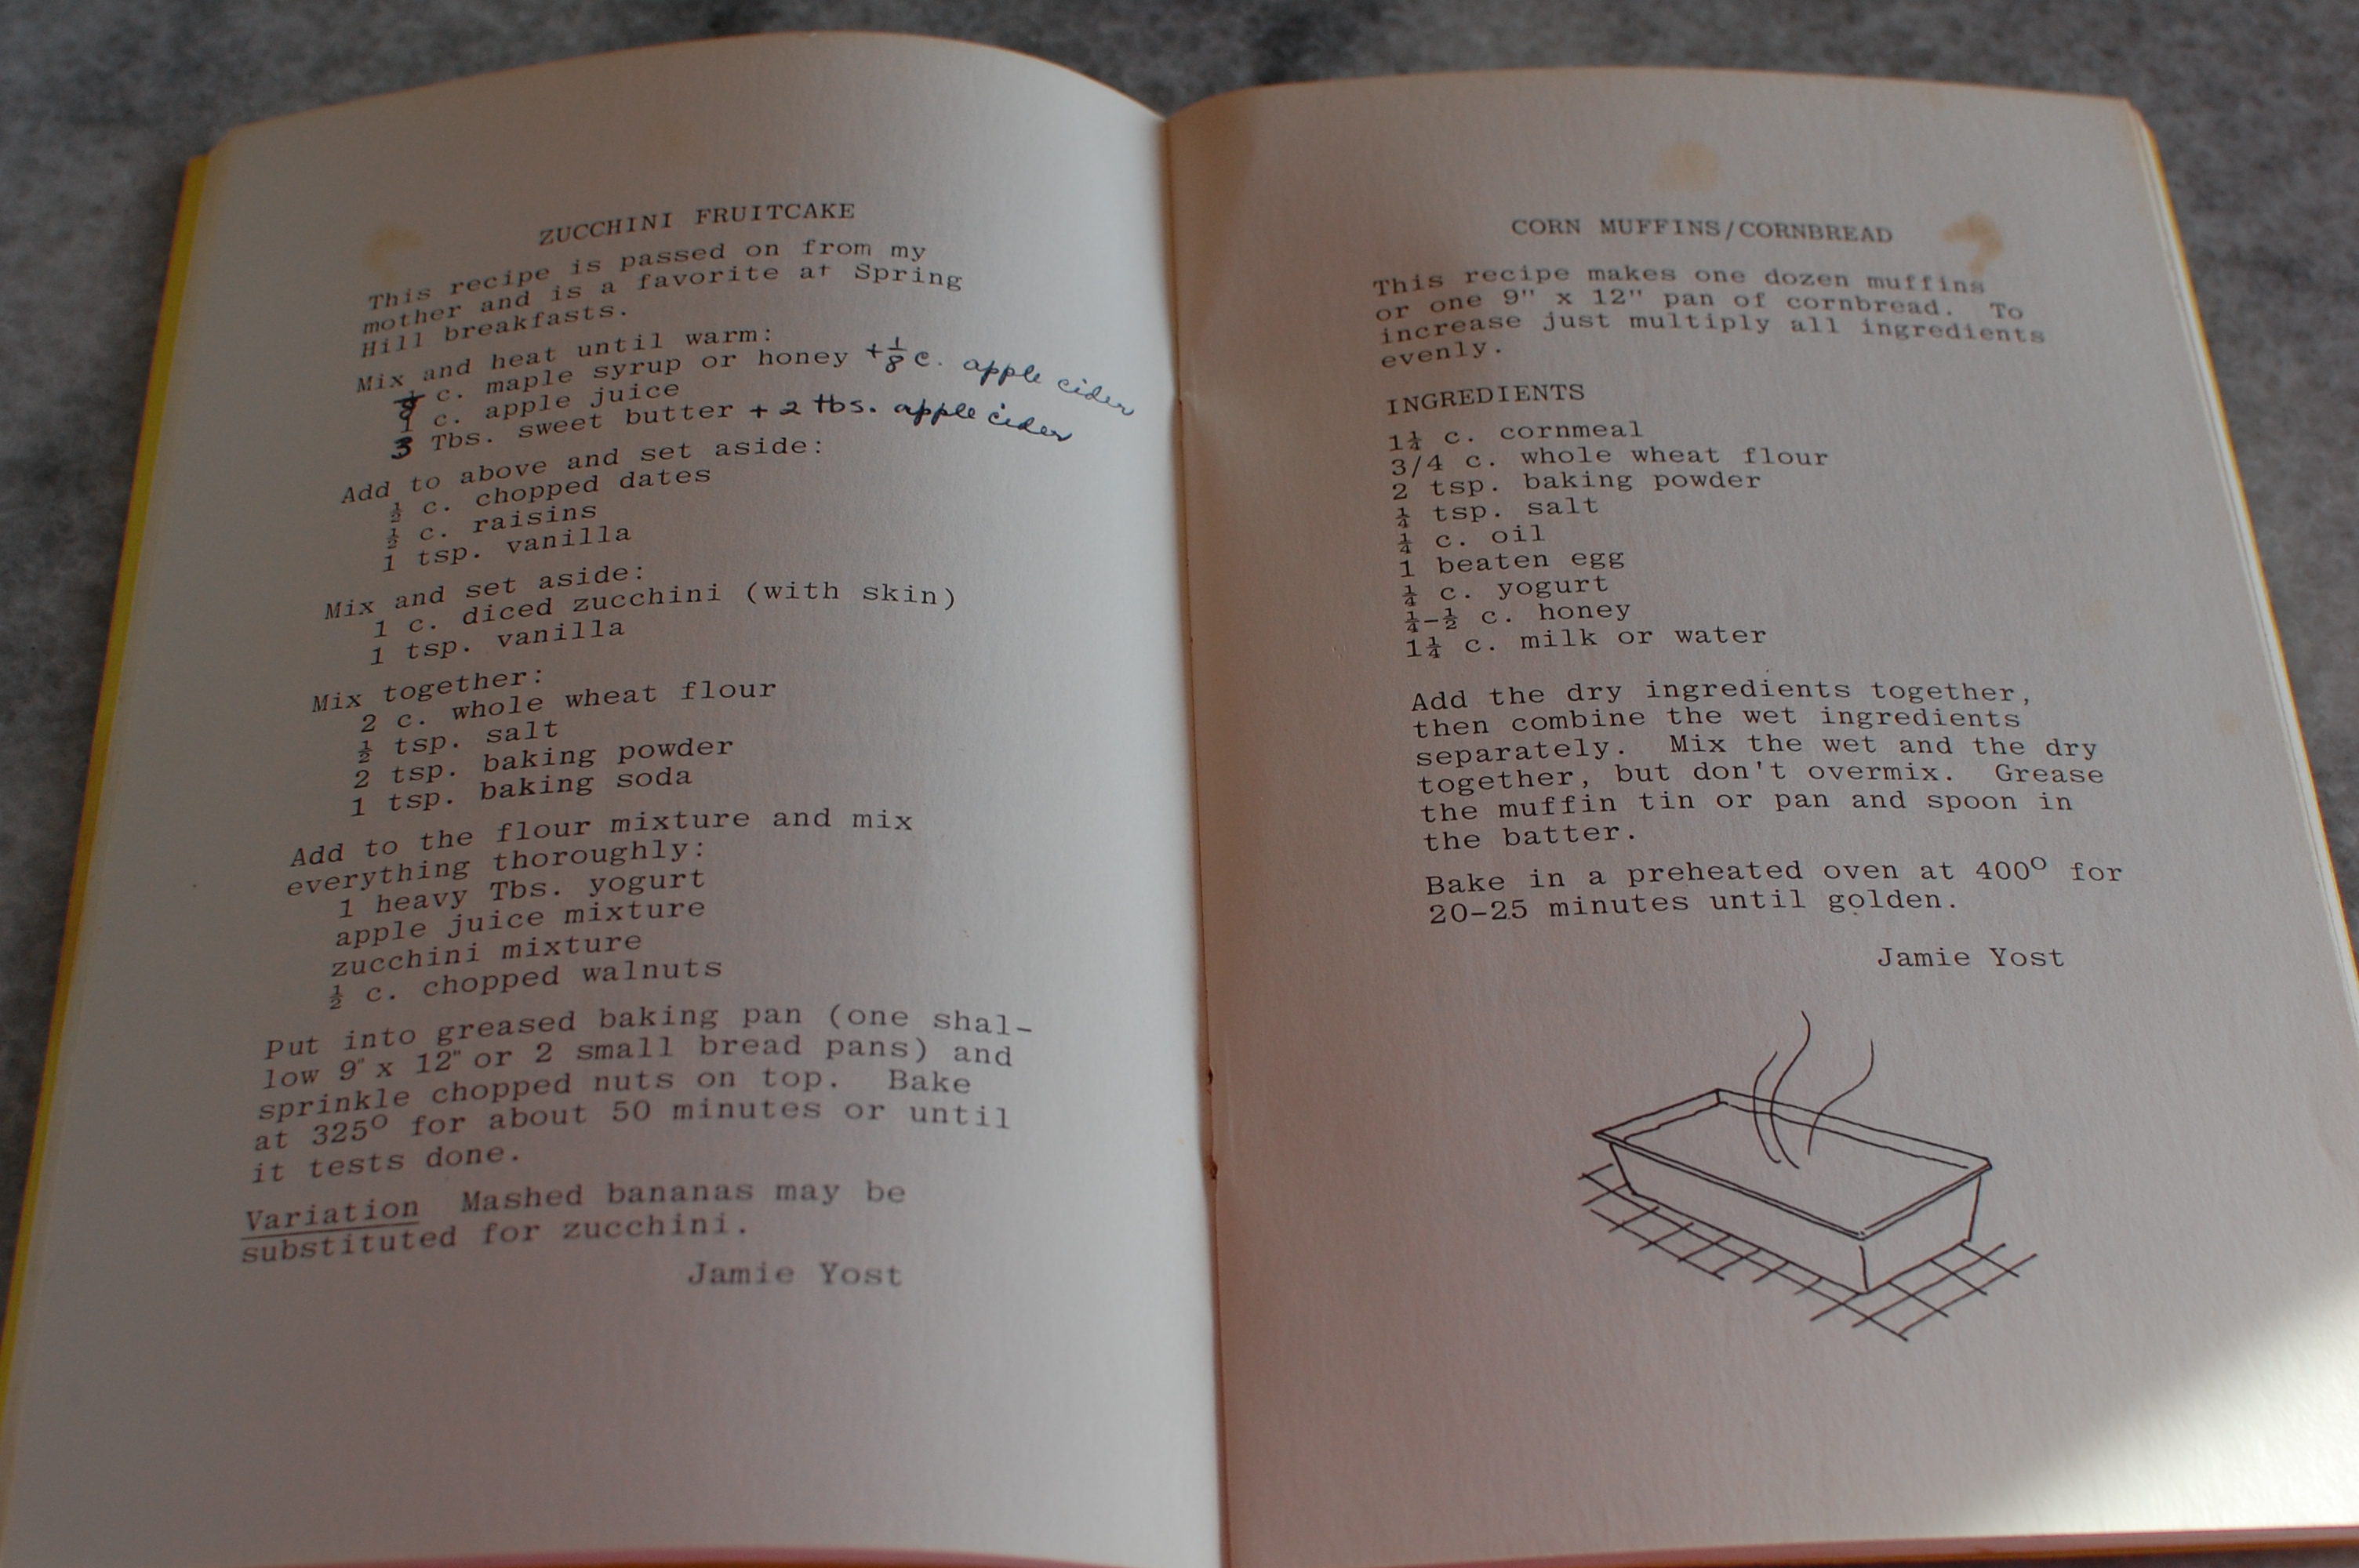 ZUCCHINI FRUITCAKE
This recipe is passed on from my
mother and is a favorite at Spring
Hill breakfasts.
Mix and heat until warm:
c. maple syrup or honey +⅛ c. apple cider
1 c. apple juice
3 Tbs. sweet butter + 2 tbs. apple cider
Add to above and set aside:
½ c. chopped dates
½ c. raisins
1 tsp. vanilla
Mix and set aside:
1 c. diced zucchini (with skin)
1 tsp. vanilla
Mix together:
2 c. whole wheat flour
½ tsp. salt
2 tsp. baking powder
1 tsp. baking soda
Add to the flour mixture and mix
everything thoroughly:
1 heavy Tbs. yogurt
apple juice mixture
zucchini mixture
½ c. chopped walnuts
Put into greased baking pan (one shal-
low 9" x 12" or 2 small bread pans) and
sprinkle chopped nuts on top. Bake
at 325º for about 50 minutes or until
it tests done.
Variation Mashed bananas may be
substituted for zucchini.
Jamie Yost
CORN MUFFINS/CORNBREAD
This recipe makes one dozen muffins
or one 9" x 12" pan of cornbread. To
increase just multiply all ingredients
evenly.
INGREDIENTS
1¼ c. cornmeal
3/4 c. whole wheat flour
2 tsp. baking powder
¼ tsp. salt
¼ c. oil
1 beaten egg
¼ c. yogurt
¼-½ c. honey
1¼ c. milk or water
Add the dry ingredients together,
then combine the wet ingredients
separately. Mix the wet and the dry
together, but don't overmix. Grease
the muffin tin or pan and spoon in
the batter.
Bake in a preheated oven at 400º for
20-25 minutes until golden.
Jamie Yost